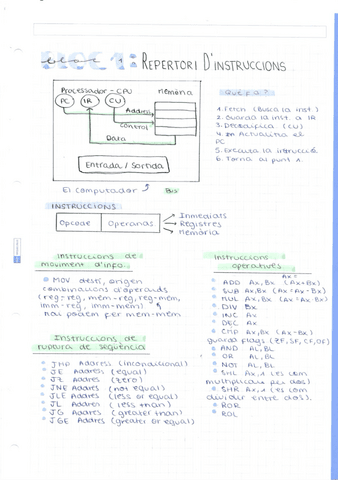 BLOC 1: REPERTORI D'INSTRUCCIONS
Processador-CPU
memòria
PC
IR
CU
Address
Control
Data
Entrada/Sortida
El computador
Bus
Què fa?
1. Fetch (Busca la inst.)
2. Guarda la inst. a IR
3. Decodifica (CU)
4. Actualitza el
PC
5. Executa la instrucció
6. Torna al punt 1.
INSTRUCCIONS
Opcode
Operands
Inmediats
Registres
Memòria
Instruccions de
moviment d'info.
MOV destí, origen
combinacions d'operands
(reg-reg, mem-reg, reg-mem,
imm-reg, imm-mem)
No podem fer mem-mem
Instruccions de
ruptura de seqüència
JMP Address (incondicional)
JE Address (equal)
JZ Address (zero)
JNE Address (not equal)
JLE Address (less or equal)
JL Address (less than)
JG Address (greater than)
JGE Address (greater or equal)
Instruccions
operatives
Ax=
ADD Ax,Bx (Ax+Bx)
SUB Ax,Bx (Ax-Bx)
MUL Ax,Bx (Ax·Bx)
DIV Bx
INC Ax
DEC Ax
CMP Ax,Bx (Ax-Bx)
guarda flags (ZF, SF, CF, OF)
AND AL,BL
OR AL,BL
NOT AL,BL
SHL Ax,1 (és com
multiplicar per dos)
SHR Ax,1 (és com
dividir entre dos).
ROR
ROL